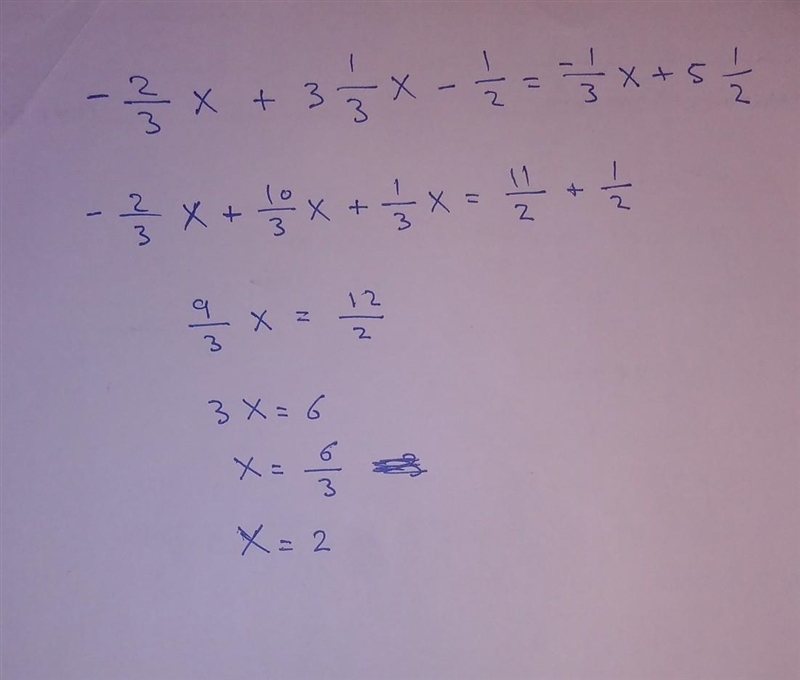 - 2/3 x + 3 1/3 x - 1/2 = -1/3 x + 5 1/2
- 2/3 x + 10/3 x + 1/3 x = 11/2 + 1/2
9/3 x = 12/2
3x = 6
x = 6/3
x = 2